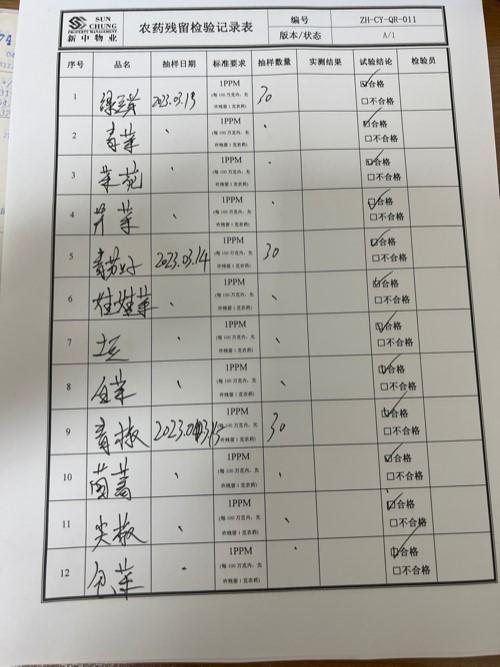 SUN CHUNG
PROPERTY MANAGEMENT
新中物业
农药残留检验记录表
编号 ZH-CY-QR-011
版本/状态 A/1
序号 品名 抽样日期 标准要求 抽样数量 实测结果 试验结论 检验员
1 2023.03.13 1PPM (每100万克内,允许残留1克农药) 30 ☑合格 □不合格
2 青菜 、 1PPM (每100万克内,允许残留1克农药) 、 ☑合格 □不合格
3 菜苑 、 1PPM (每100万克内,允许残留1克农药) 、 ☑合格 □不合格
4 芹菜 、 1PPM (每100万克内,允许残留1克农药) 、 ☑合格 □不合格
5 2023.03.14 1PPM (每100万克内,允许残留1克农药) 30 ☑合格 □不合格
6 娃娃菜 、 1PPM (每100万克内,允许残留1克农药) 、 ☑合格 □不合格
7 土豆 、 1PPM (每100万克内,允许残留1克农药) 、 ☑合格 □不合格
8 白菜 、 1PPM (每100万克内,允许残留1克农药) 、 ☑合格 □不合格
9 青椒 1PPM (每100万克内,允许残留1克农药) 30 ☑合格 □不合格
10 、 1PPM (每100万克内,允许残留1克农药) 、 ☑合格 □不合格
11 尖椒 、 1PPM (每100万克内,允许残留1克农药) 、 ☑合格 □不合格
12 包菜 、 1PPM (每100万克内,允许残留1克农药) 、 ☑合格 □不合格